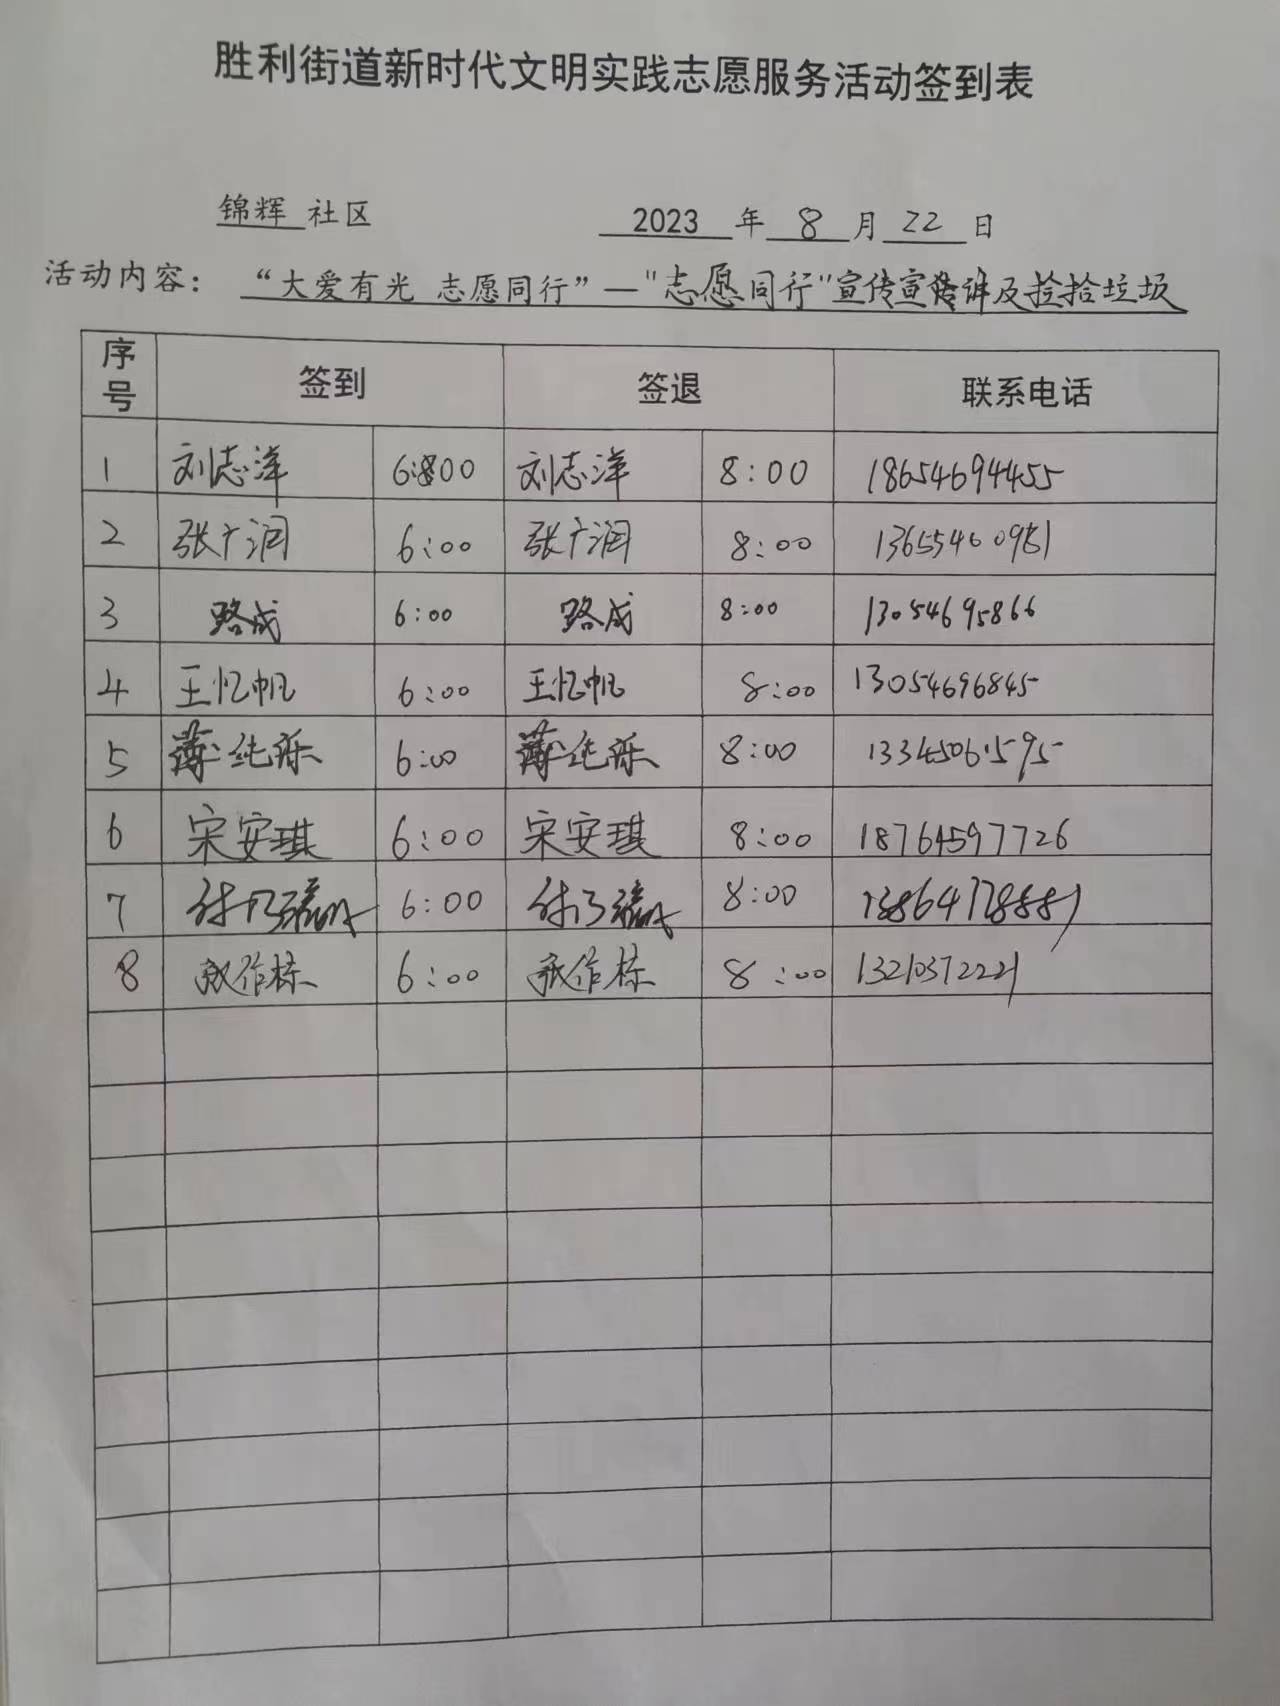 胜利街道新时代文明实践志愿服务活动签到表
锦辉 社区 2023 年 8 月 22 日
活动内容： “大爱有光 志愿同行”—"志愿同行"宣传宣讲及捡拾垃圾
序号 签到 签退 联系电话
1 刘志洋 6:00 刘志洋 8:00 18654694455
2 张广润 6:00 张广润 8:00 13655460981
3 路成 6:00 路成 8:00 13054695866
4 王忆帆 6:00 王忆帆 8:00 13054696845
5 薄纯乐 6:00 薄纯乐 8:00 13345061595
6 宋安琪 6:00 宋安琪 8:00 18764597726
7 6:00 8:00
8 6:00 张作栋 8:00 13210372221